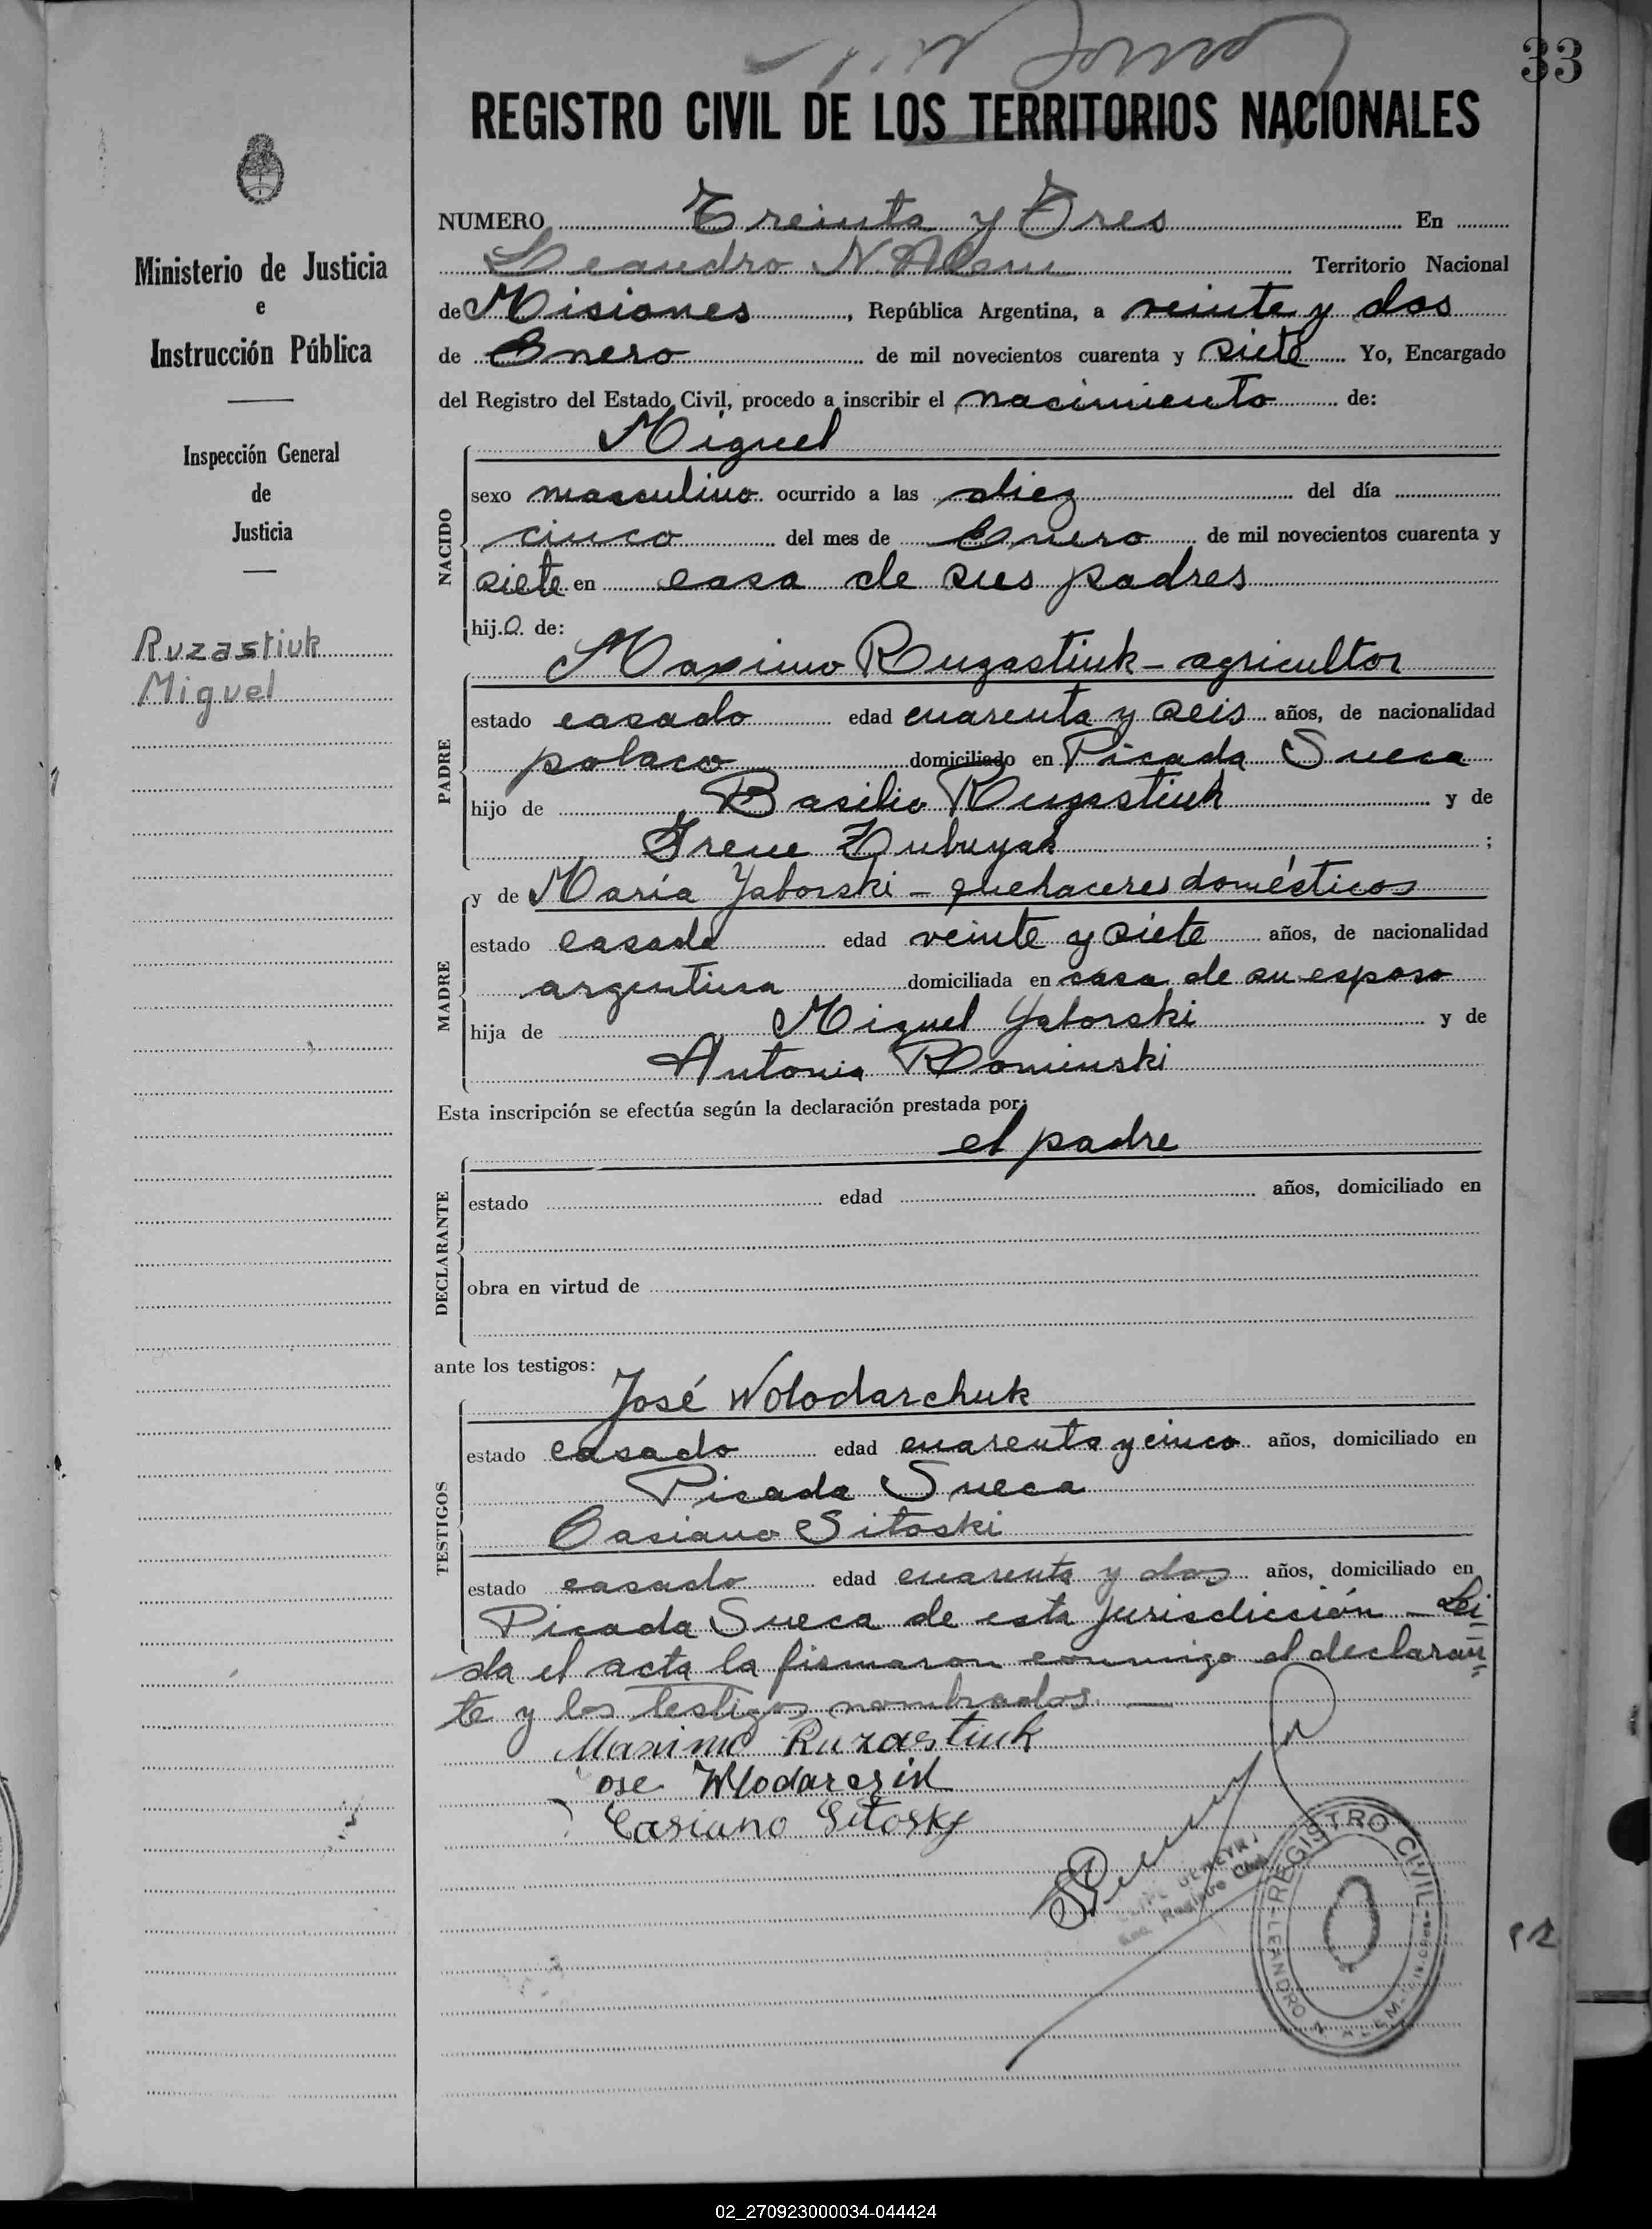 33
REGISTRO CIVIL DE LOS TERRITORIOS NACIONALES
Ministerio de Justicia
e
Instrucción Pública
Inspección General
de
Justicia
Ruzastiuk
Miguel
NUMERO Treinta y Tres En
Leandro N. Alem Territorio Nacional
de Misiones, República Argentina, a veinte y dos
de Enero de mil novecientos cuarenta y siete Yo, Encargado
del Registro del Estado Civil, procedo a inscribir el nacimiento de:
Miguel
NACIDO
sexo masculino ocurrido a las diez del día
cinco del mes de Enero de mil novecientos cuarenta y
siete en casa de sus padres
hijo de:
Maximo Ruzastiuk - agricultor
PADRE
estado casado edad cuarenta y seis años, de nacionalidad
polaco domiciliado en Picada Sueca
hijo de Basilio Ruzastiuk y de
Irene ;
MADRE
y de María Yaborski - quehaceres domésticos
estado casada edad veinte y siete años, de nacionalidad
argentina domiciliada en casa de su esposo
hija de Miguel Yaborski y de
Antonia Rominski
Esta inscripción se efectúa según la declaración prestada por:
el padre
DECLARANTE
estado edad años, domiciliado en
obra en virtud de
ante los testigos:
José Wolodarchuk
TESTIGOS
estado casado edad cuarenta y cinco años, domiciliado en
Picada Sueca
Casiano Sitoski
estado casado edad cuarenta y dos años, domiciliado en
Picada Sueca de esta jurisdicción - Lei
da el acta la firmaron conmigo el declaran
te y los testigos nombrados. —
Maximo Ruzastiuk
Jose
Casiano Sitosky
Registro Civil
REGISTRO CIVIL
LEANDRO N. ALEM
02_270923000034-044424